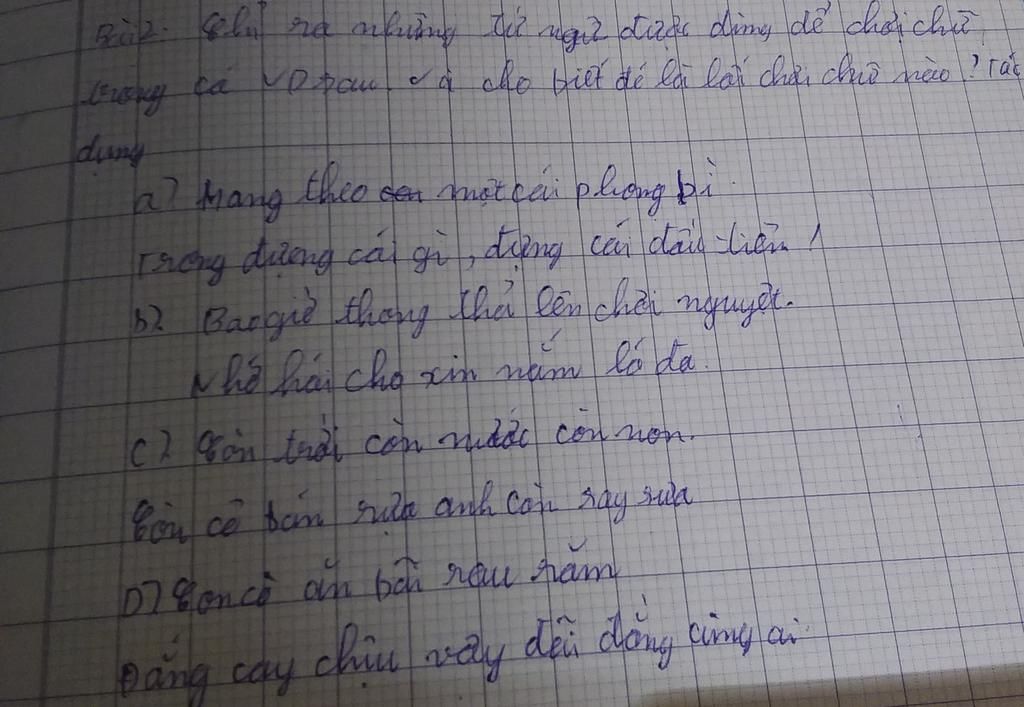 Bài 2: Chỉ ra những từ ngữ được dùng để chơi chữ
trong cá VD sau và cho biết đó là lối chơi chữ nào? Tác
dụng
a) Mang theo một cái phong bì.
Trong đựng cái gì, đựng cái đầu tiên!
b) Bao giờ thong thả lên chơi nguyệt.
Nhớ hái cho xin nắm lá đa.
c) Còn trời còn nước còn non.
Còn cô bán rượu anh còn say sưa
D) Con cò ăn bãi rau răm
Đắng cay chịu vậy đãi đằng cùng ai.